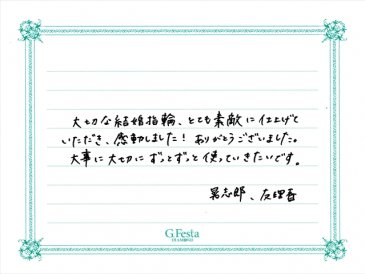 大切な結婚指輪、とても素敵に仕上げて
いただき、感動しました！ありがとうございました。
大事に大切にずっとずっと使っていきたいです。
志郎、友理香
G.Festa
DIAMOND